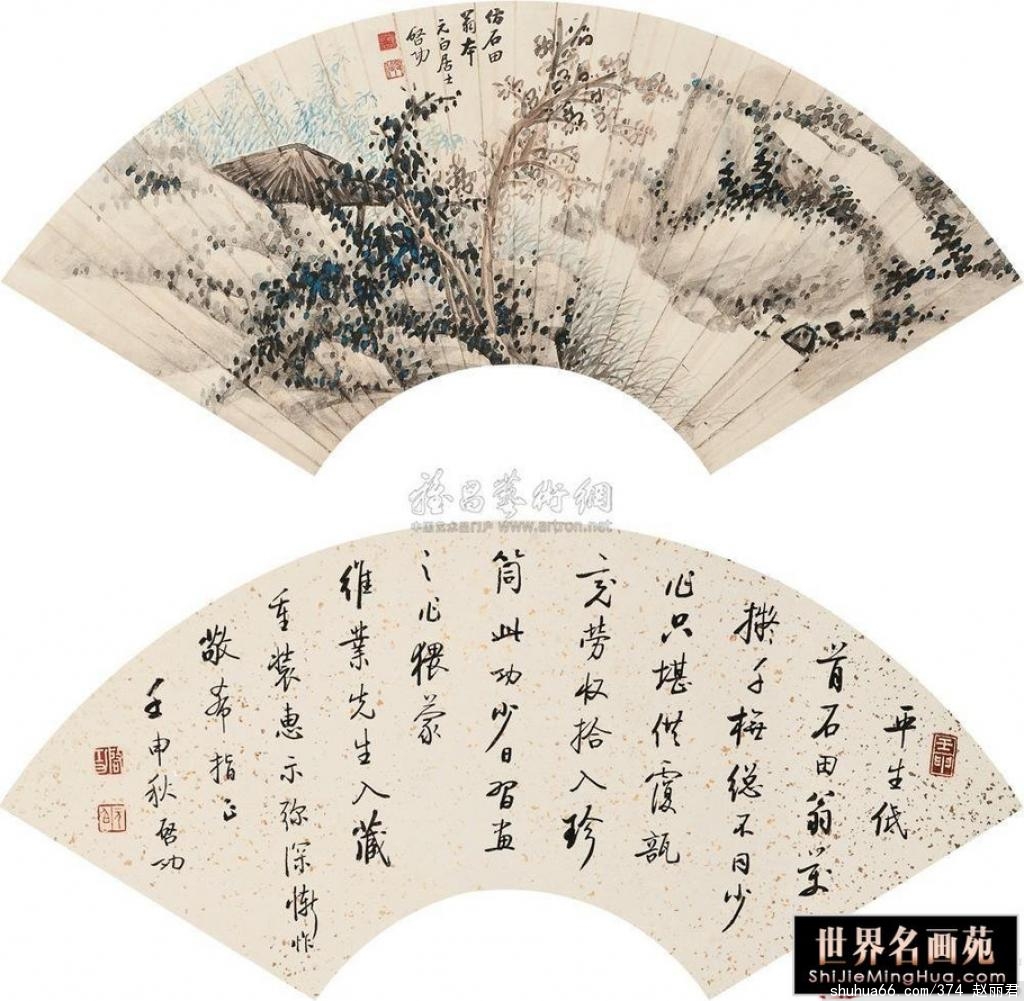 仿石田
翁本
元白居士
启功
雅昌藝術網
中国艺术品门户 www.artron.net
平生低
首石田翁万
拟千橅总不同少
作只堪供覆瓿
亮劳收拾入珍
筒此功少日习画
之作猥蒙
维业先生入藏
重装惠示弥深惭怍
敬希指正
壬申秋启功
世界名画苑
ShiJieMingHua.com
shuhua66.com/374_赵丽君